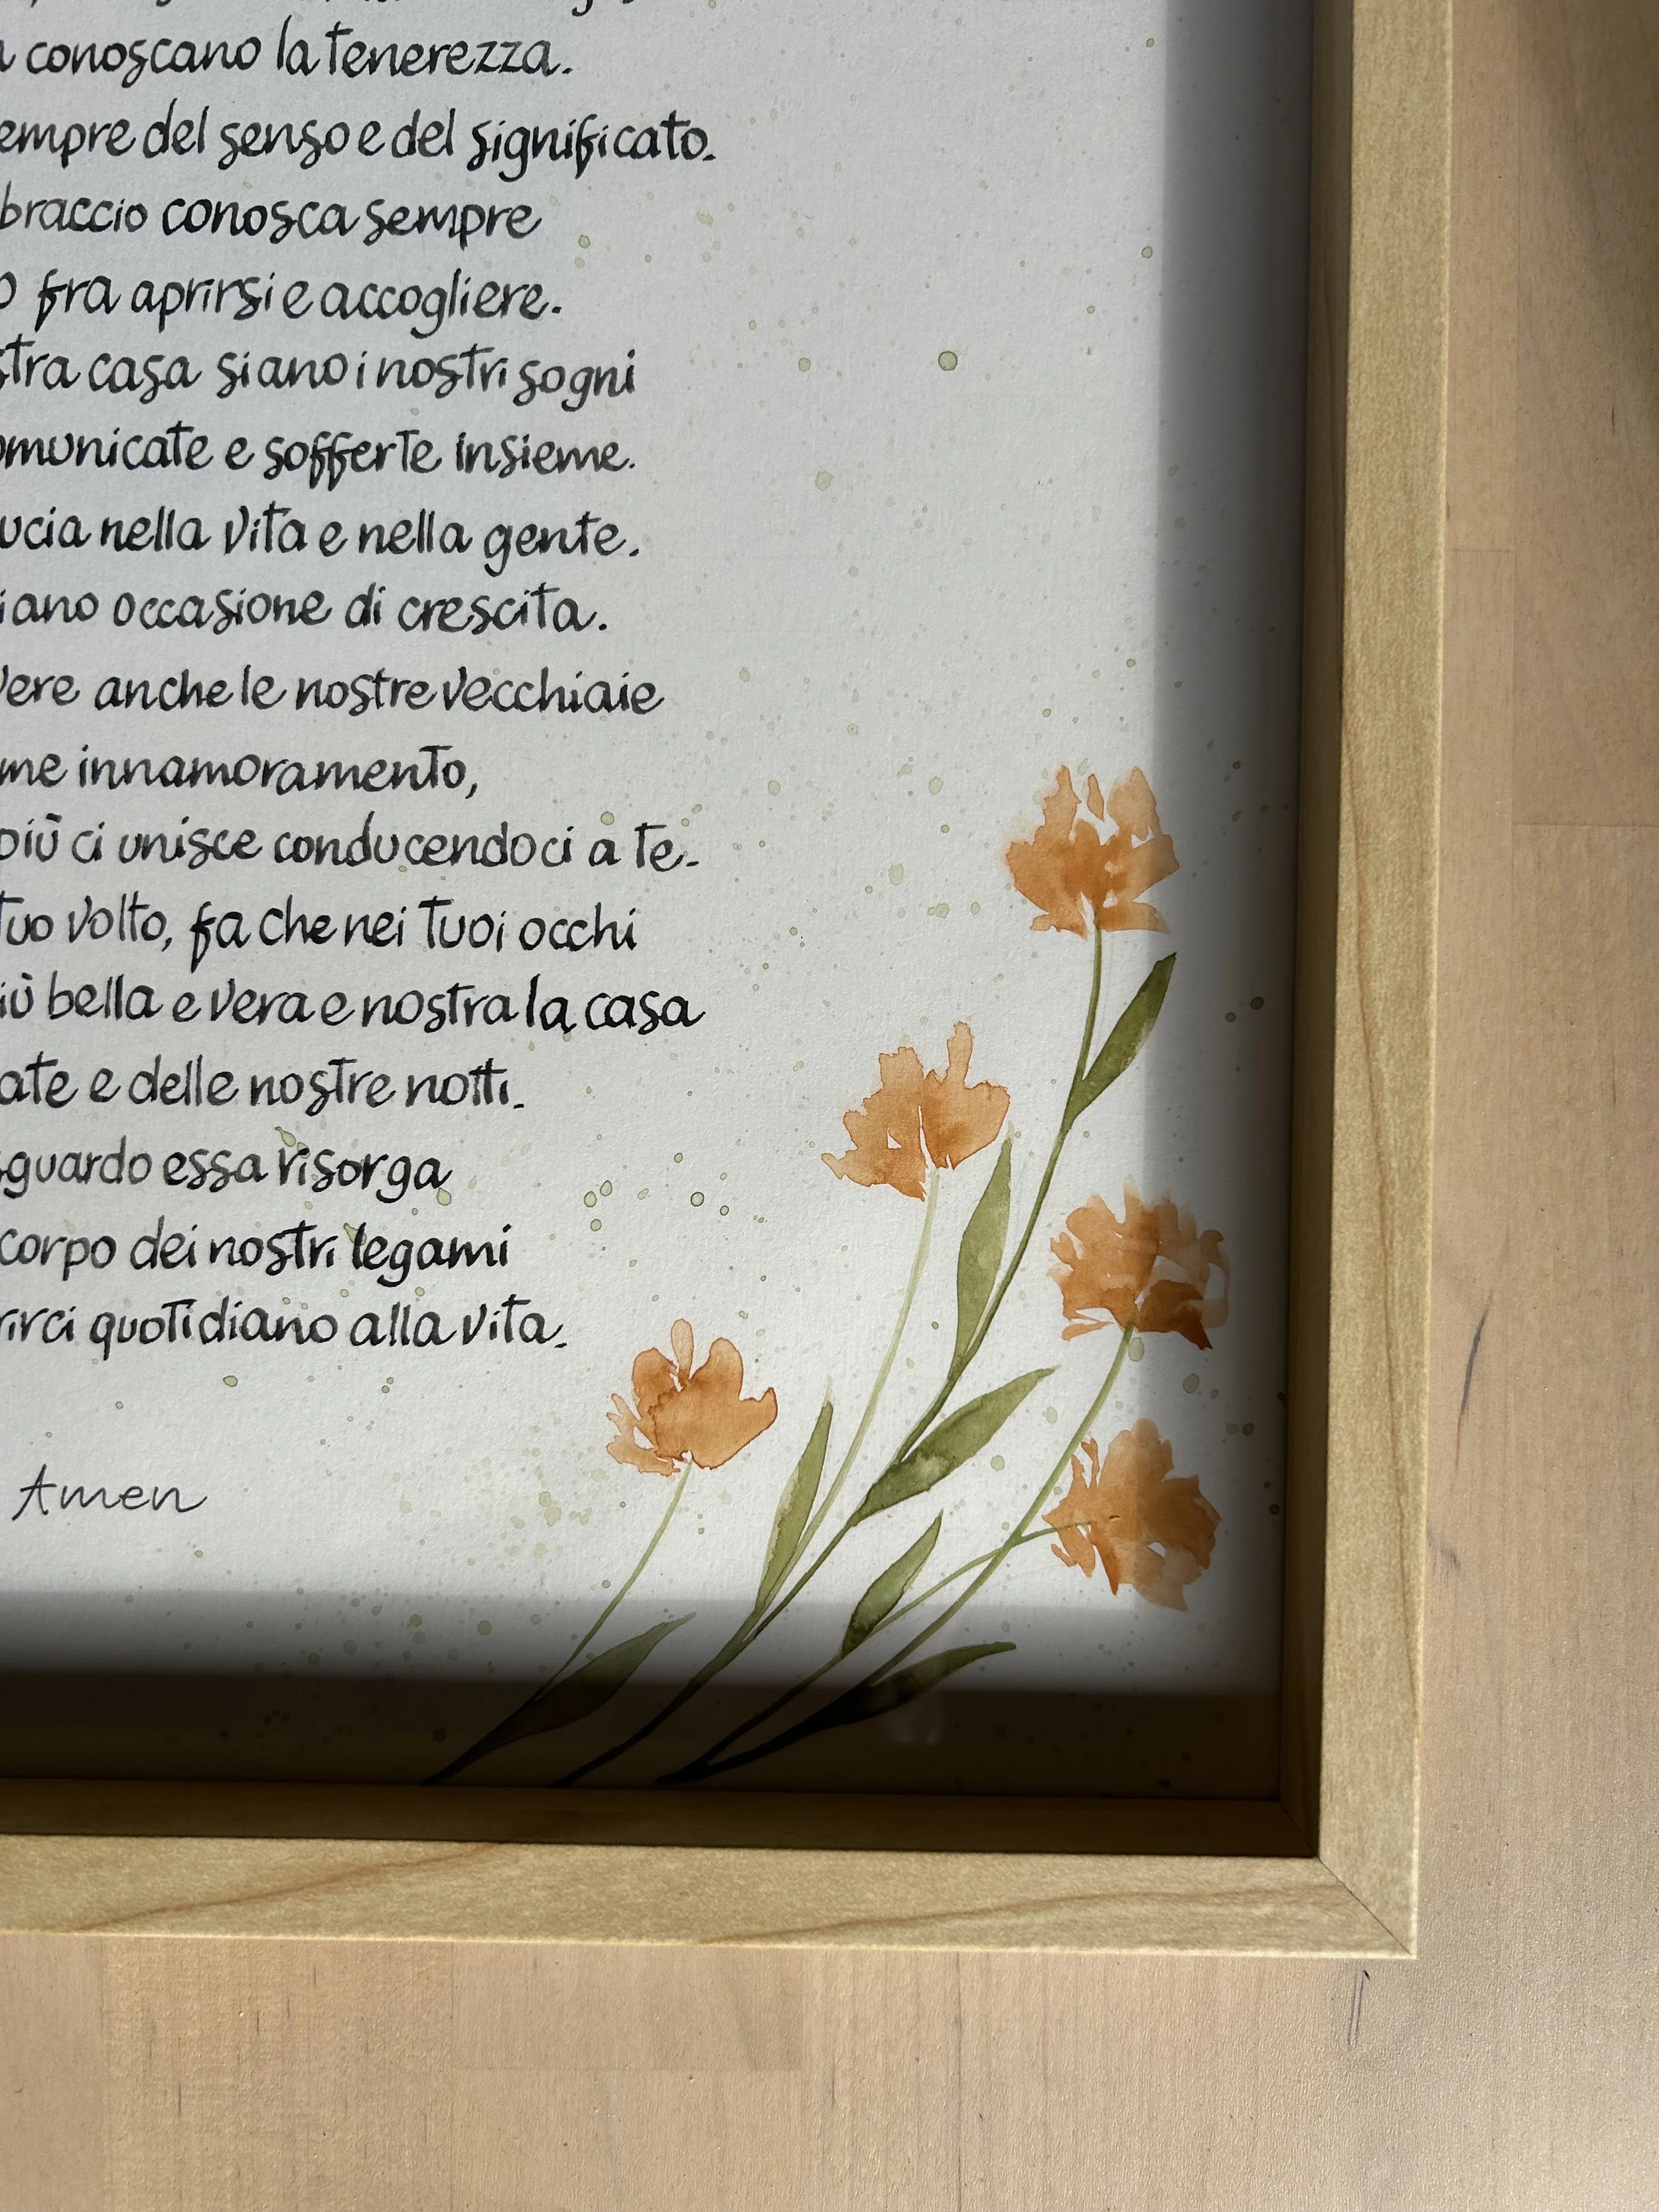 conoscano la tenerezza.
empre del senso e del significato.
braccio conosca sempre
o fra aprirsi e accogliere.
stra casa siano i nostri sogni
omunicate e sofferte insieme.
ucia nella vita e nella gente.
iano occasione di crescita.
vere anche le nostre vecchiaie
me innamoramento,
più ci unisce conducendoci a te.
tuo volto, fa che nei tuoi occhi
iù bella e vera e nostra la casa
ate e delle nostre notti.
sguardo essa risorga
corpo dei nostri legami
rirci quotidiano alla vita.
Amen